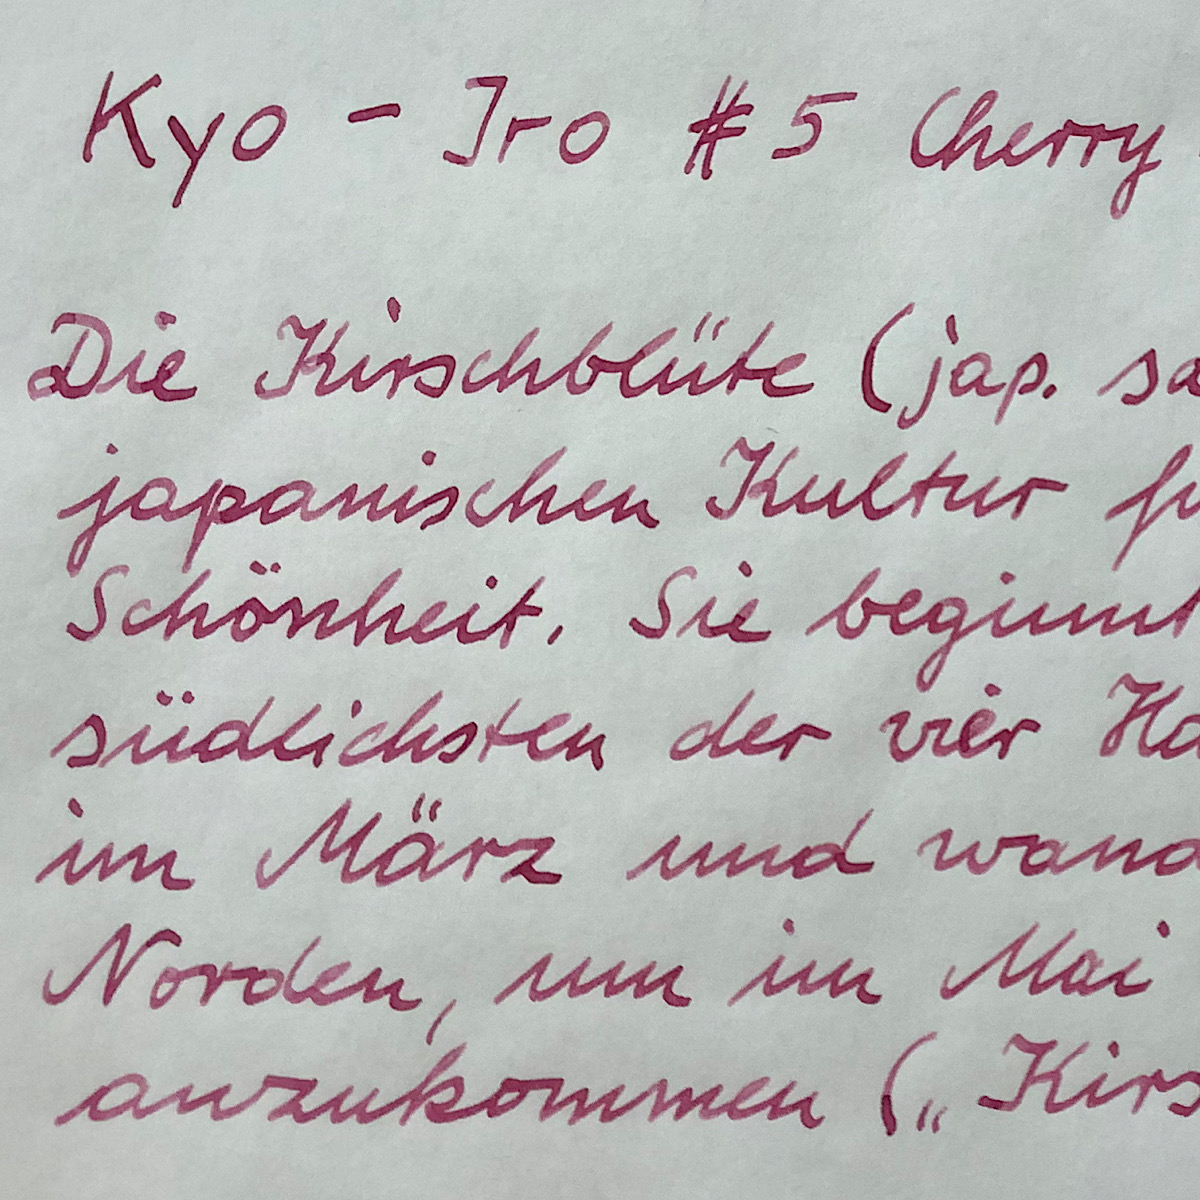 Kyo - Iro #5 Cherry
Die Kirschblüte (jap. sa
japanischen Kultur fü
Schönheit. Sie beginnt
südlichsten der vier Ha
im März und wand
Norden, um im Mai
anzukommen („Kirs